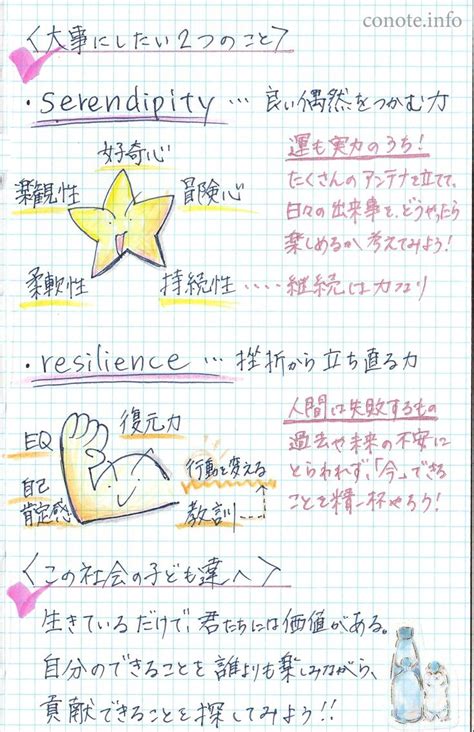 conote.info
〈大事にしたい2つのこと〉
・serendipity … 良い偶然をつかむ力
好奇心
楽観性
冒険心
柔軟性
持続性 ····· 継続は力なり
運も実力のうち!
たくさんのアンテナを立てて、
日々の出来事を、どうやったら
楽しめるか考えてみよう!
・resilience … 挫折から立ち直る力
復元力
EQ
自己
肯定感
行動を変える
教訓
人間は失敗するもの
過去や未来の不安に
とらわれず、「今」できる
ことを精一杯やろう!
〈この社会の子ども達へ〉
生きているだけで、君たちには価値がある。
自分のできることを誰よりも楽しみながら、
貢献できることを探してみよう!!